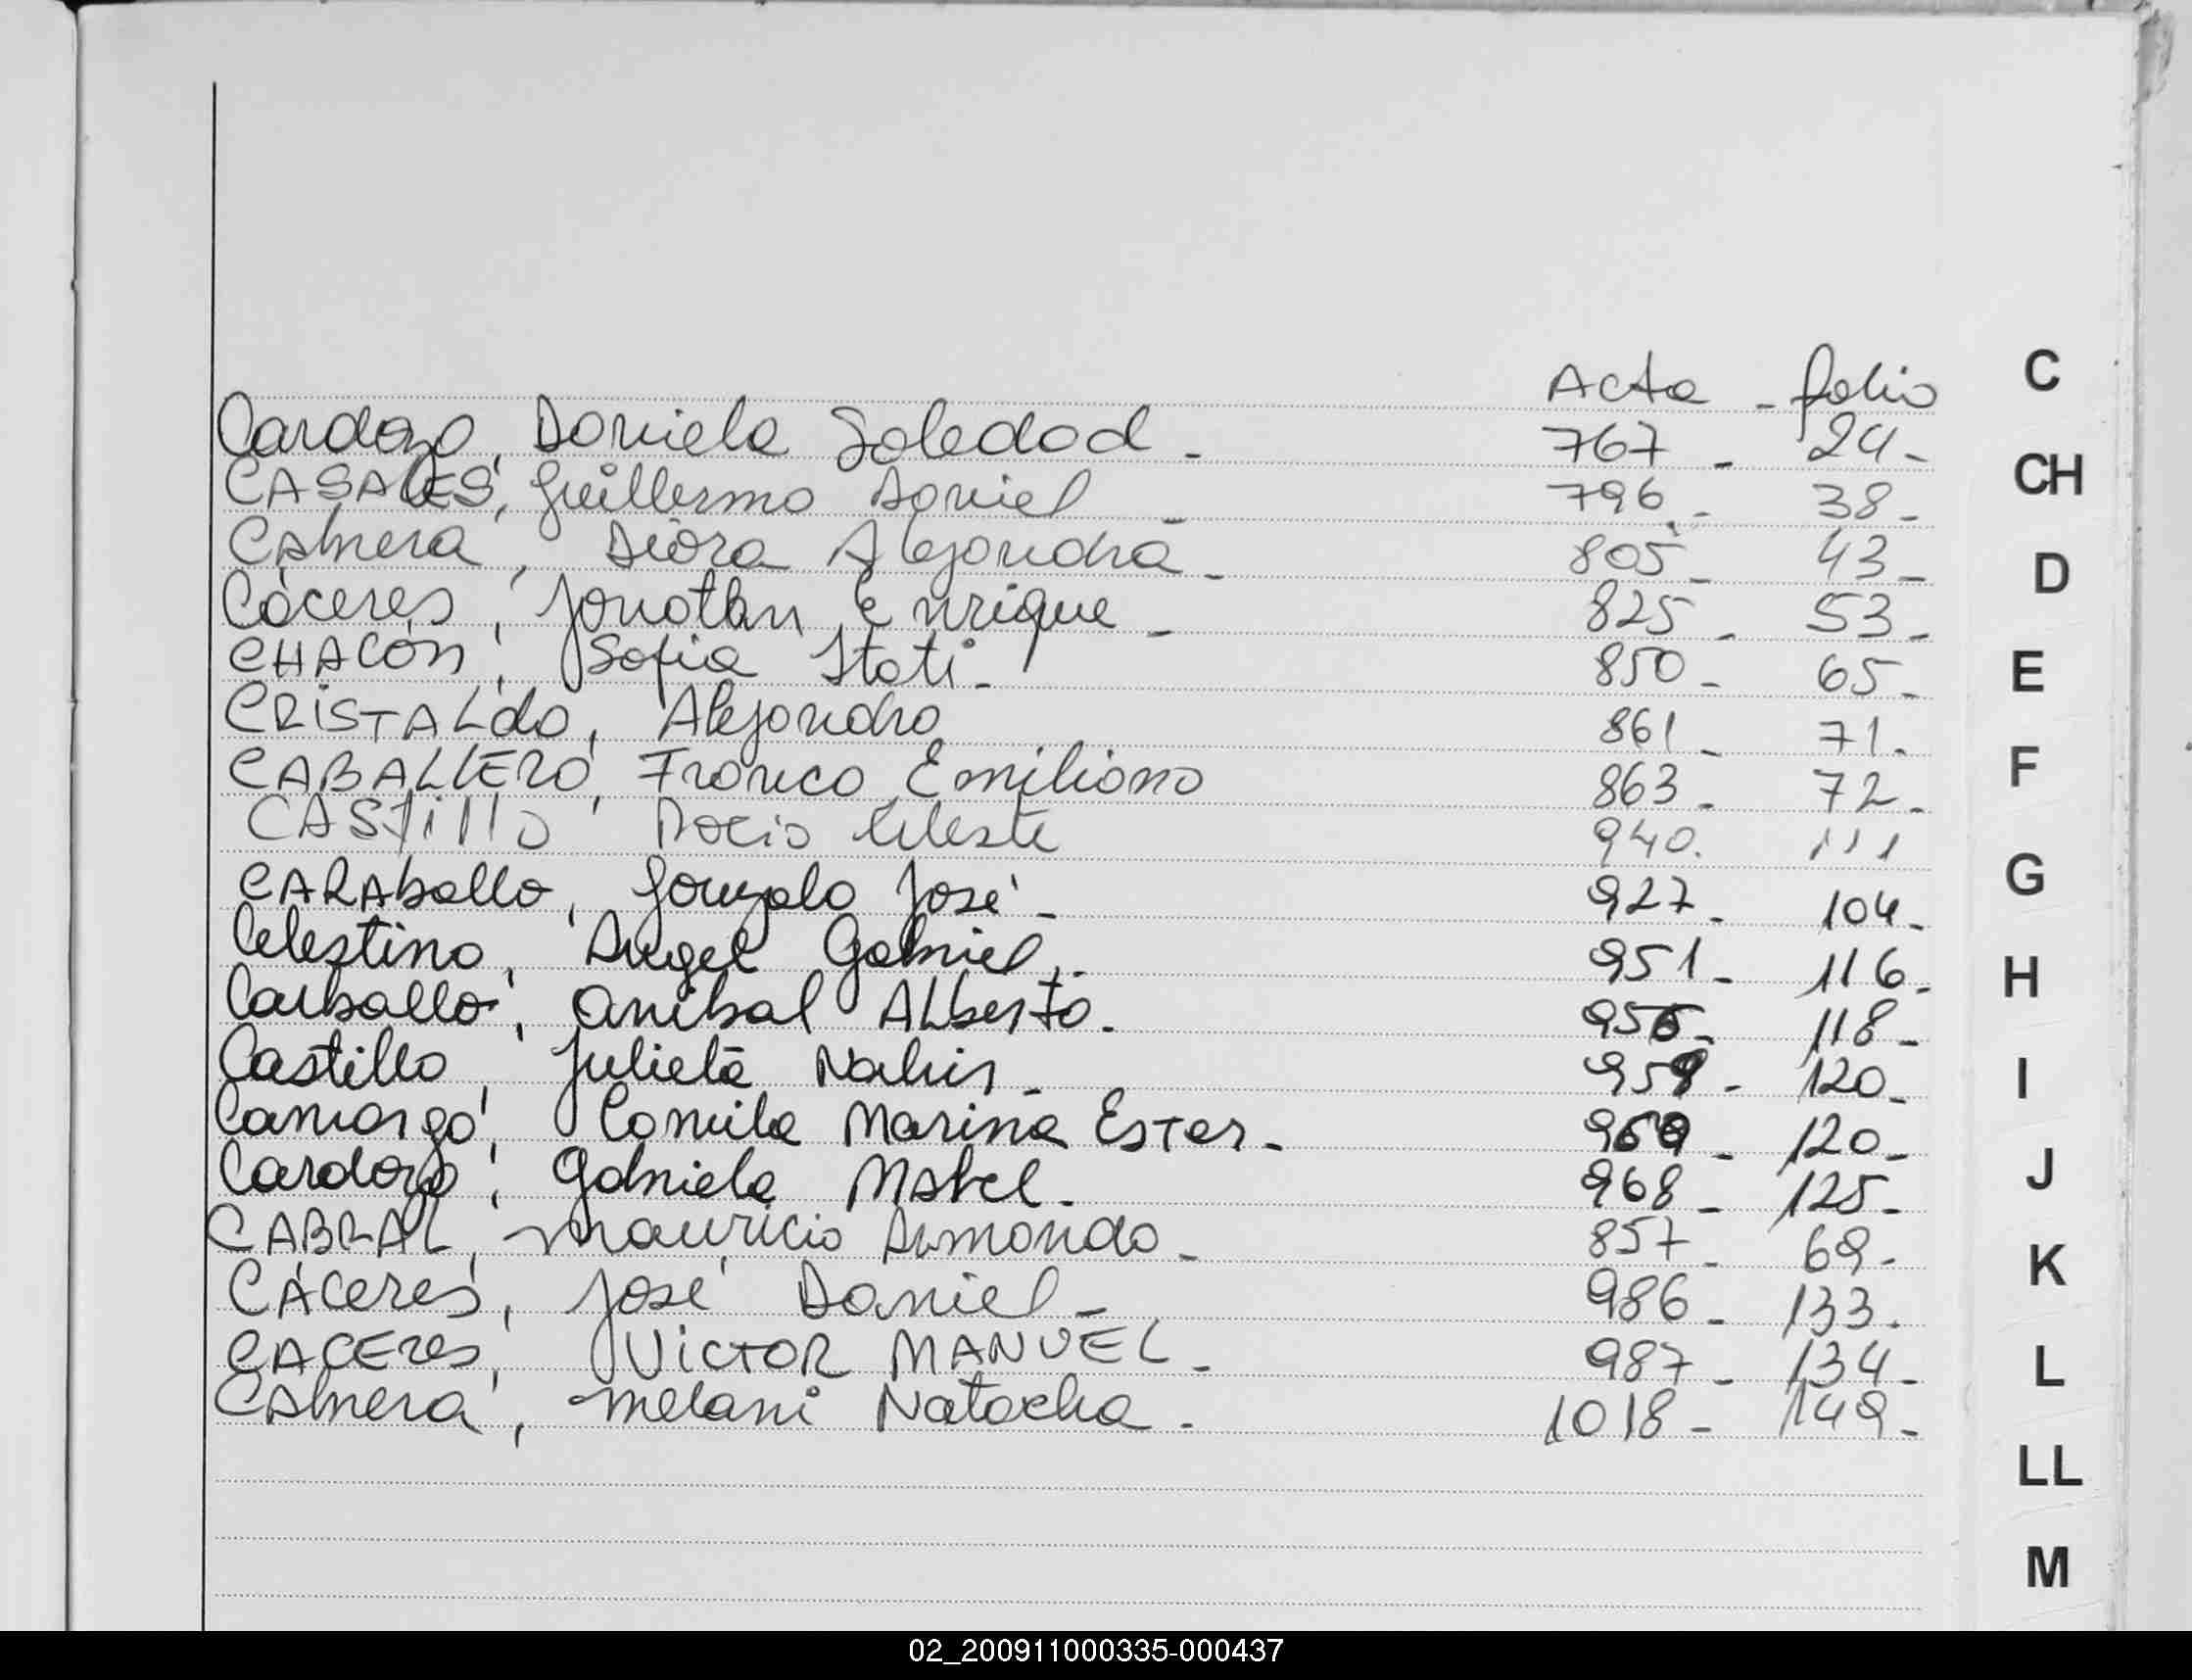 Acta - folio C
Cardozo, Daniela Soledad - 767 - 24 -
CASALES, Guillermo Daniel - 796 - 38 - CH
Cabrera, Débora Alejandra - 805 - 43 - D
Cáceres, Jonathan Enrique - 825 - 53 -
CHACÓN, Sofia Itatí - 850 - 65 - E
CRISTALdo, Alejandro 861 - 71 -
CABALLERO, Franco Emiliano 863 - 72 - F
CASTILLO, Rocio Celeste 940. 111
CARAballo, Gonzalo José - 927 - 104 - G
Celestino, Angel Gabriel - 951 - 116 - H
Carballo, Anibal ALberto - 118 -
Castillo, Julieta 959 - 120 - I
Camargo, Camila Marina Ester - 120 -
Cardozo, Gabriela Mabel - 968 - 125 - J
CABRAL, Mauricio Armando - 857 - 69 -
CÁceres, José Daniel - 986 - 133 - K
CACEres, VICTOR MANUEL - 987 - 134 - L
Cabrera, Melani Natacha - 1018 - 149 -
LL
M
02_200911000335-000437